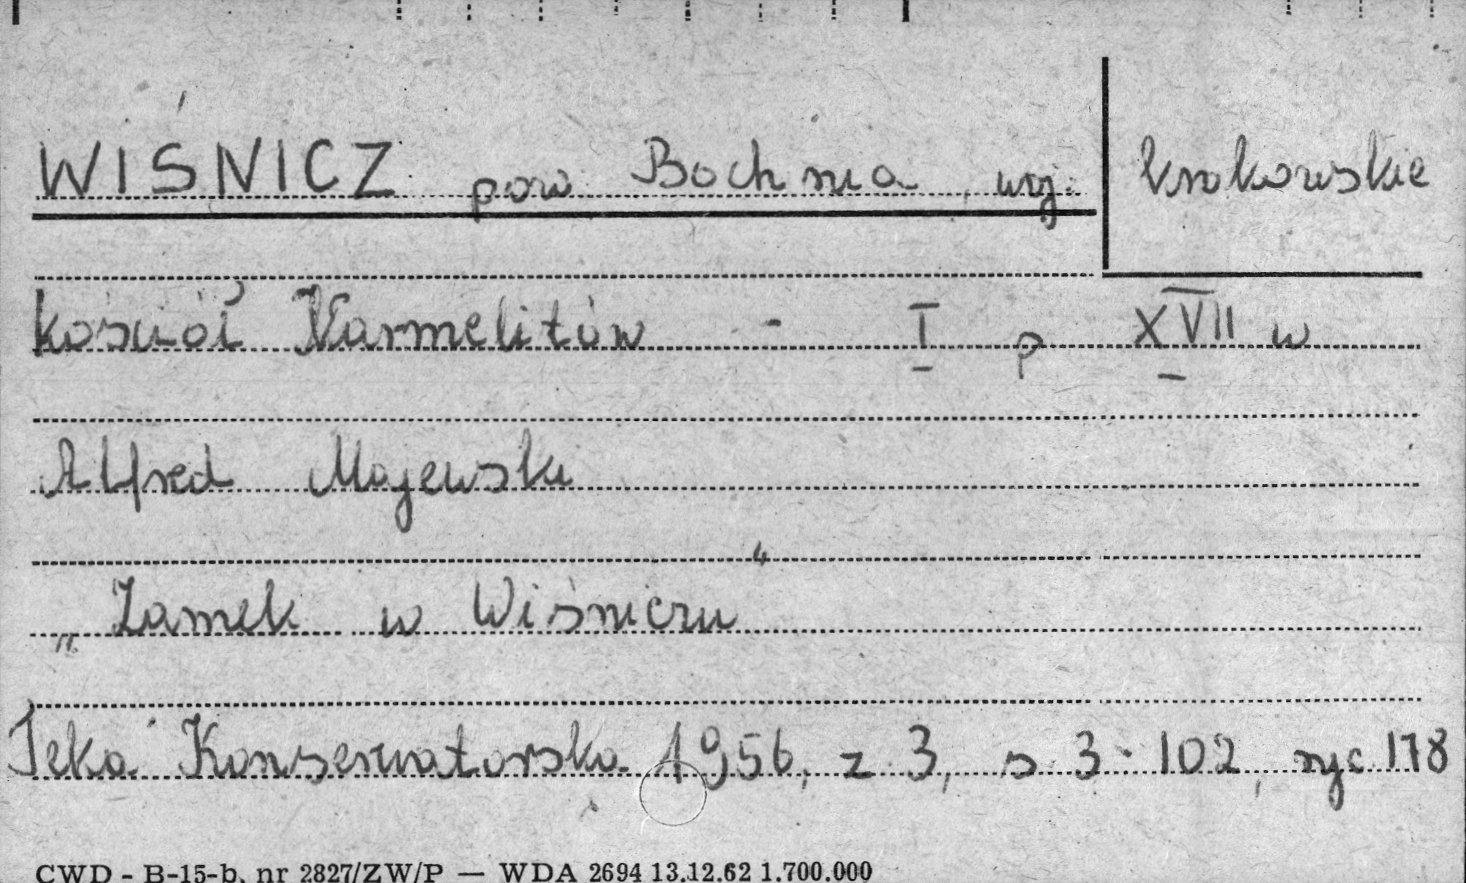 WIŚNICZ pow. Bochnia, woj. krakowskie
kościół Karmelitów - I p XVII w
Alfred Majewski
„Zamek w Wiśniczu"
Teka Konserwatorska 1956, z 3, s 3-102, ryc 178
CWD - B-15-b, nr 2827/ZW/P — WDA 2694 13.12.62 1.700.000